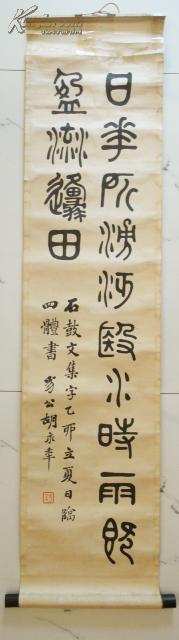 日華所湧沔殹水時雨既
盈流邍田
石鼓文集字乙卯立夏日臨
四體書 公胡永年